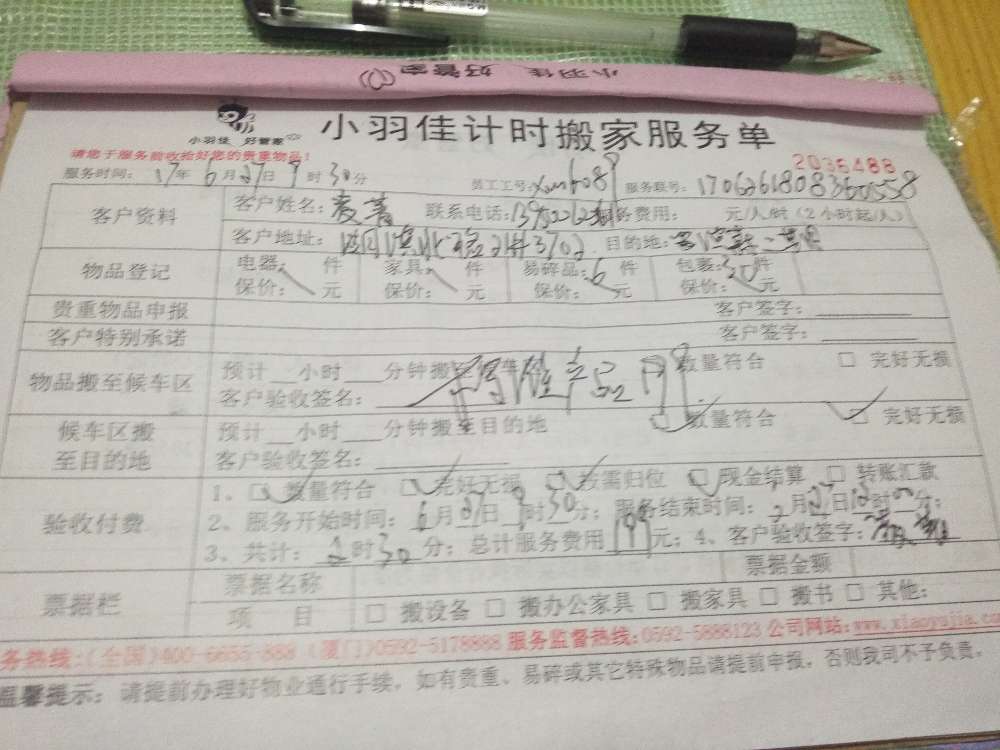 小羽佳 好管家
小羽佳 好管家
小羽佳计时搬家服务单
请您于服务前收拾好您的贵重物品!
2035488
服务时间: 17年6月27日9时30分 员工工号: xm6089 服务联号: 1706261808360558
客户资料 客户姓名: 联系电话: 服务费用: 元/人/时(2小时起/人)
客户地址: 目的地:
物品登记 电器: 件 家具: 件 易碎品: 6 件 包裹: 30 件
保价: 元 保价: 元 保价: 元 保价: 元
贵重物品申报 客户签字:
客户特别承诺 客户签字:
物品搬至候车区 预计 小时 分钟搬 数量符合 □ 完好无损
客户验收签名:
候车区搬至目的地 预计 小时 分钟搬至目的地 数量符合 完好无损
客户验收签名:
验收付费 1、 数量符合 完好无损 所需归位 现金结算 □ 转账汇款
2、服务开始时间: 6月27日9时30分; 服务结束时间: 月27日12时00分;
3、共计: 2时30分; 总计服务费用 元; 4、客户验收签字:
票据栏 票据名称 票据金额
项 目 □ 搬设备 □ 搬办公家具 □ 搬家具 □ 搬书 □ 其他:
务热线:(全国)400-6655-888 (厦门)0592-5178888 服务监督热线:0592-5888123 公司网站:www.xiaoyujia.co
温馨提示: 请提前办理好物业通行手续,如有贵重、易碎或其它特殊物品请提前申报,否则我司不予负责。